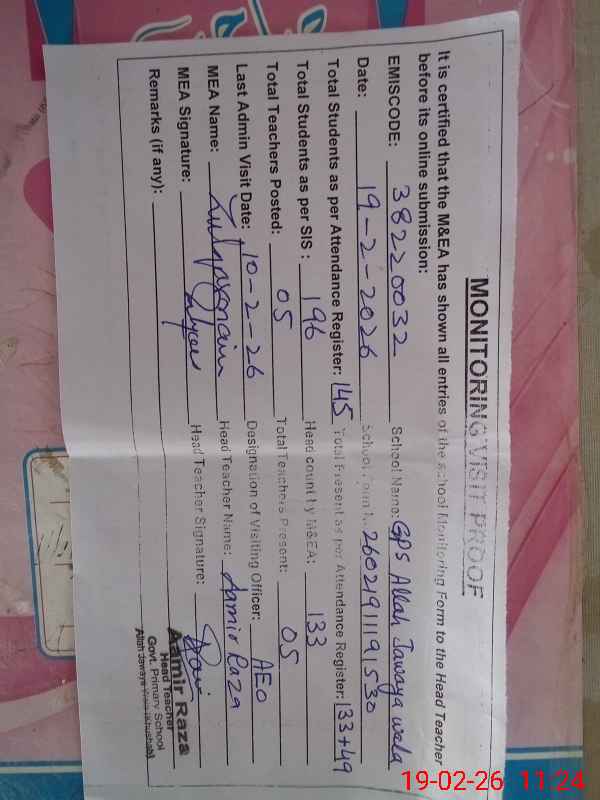 MONITORING VISIT PROOF
It is certified that the M&EA has shown all entries of the School Monitoring Form to the Head Teacher
before its online submission:
EMISCODE: 38220032 School Name: GPS Allah Jawaya wala
Date: 19-2-2026 School Form No. 26021911191530
Total Students as per Attendance Register: 145 Total Present as per Attendance Register: 133+49
Total Students as per SIS : 196 Head count by M&EA: 133
Total Teachers Posted: 05 Total Teachers Present: 05
Last Admin Visit Date: 10-2-26 Designation of Visiting Officer: AEO
MEA Name: Head Teacher Name: Aamir Raza
MEA Signature: Head Teacher Signature:
Remarks (if any):
Aamir Raza
Head Teacher
Govt. Primary School
Allah Jawaya Wala (Khushab)
19-02-26 11:24